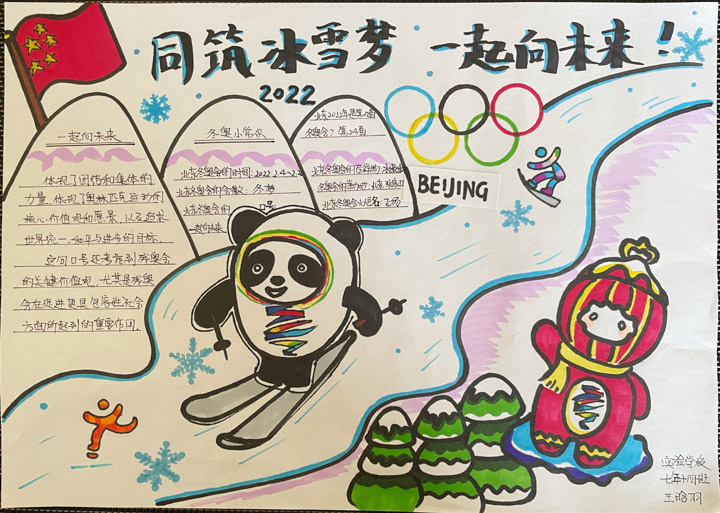 同筑冰雪梦 一起向未来！
2022
一起向未来
体现了团结和集体的
力量，体现了奥林匹克运动的
核心价值观和愿景，以及追求
世界统一、和平与进步的目标。
这句口号还考虑到残奥会
的关键价值观，尤其是残奥
会在促进更具包容性社会
方面所起到的重要作用。
冬奥小常识
北京冬奥会的时间：2022.2.4~2.2
北京冬奥会的会徽：冬梦
北京冬奥会的 口号
一起向未来
北京2022年是第几届
冬奥会？第24届
北京冬奥会的吉祥物：冰墩墩
冬奥会的举办地：北京 张家口
北京冬奥会火炬名：飞扬
BEIJING
实验学校
七年十四班
王 羽